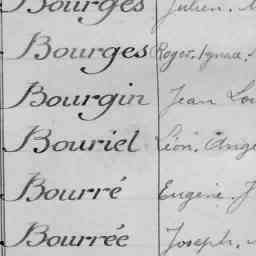 Bourges Julien.
Bourges Roger, Ignace.
Bourgin Jean Lou
Bouriel Léon. Ange
Bourré Eugène. J
Bourrée Joseph.